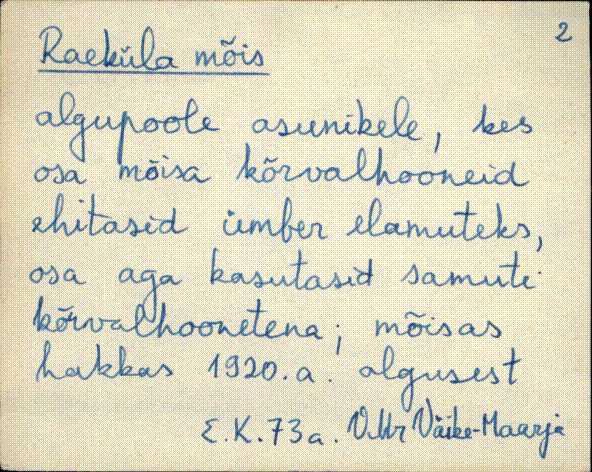 2
Raeküla mõis
algupoole asunikele, kes
osa mõisa kõrvalhooneid
ehitasid ümber elamuteks,
osa aga kasutasid samuti
kõrvalhoonetena; mõisas
hakkas 1920.a. algusest
E.K.73a. V.Mr Väike-Maarja